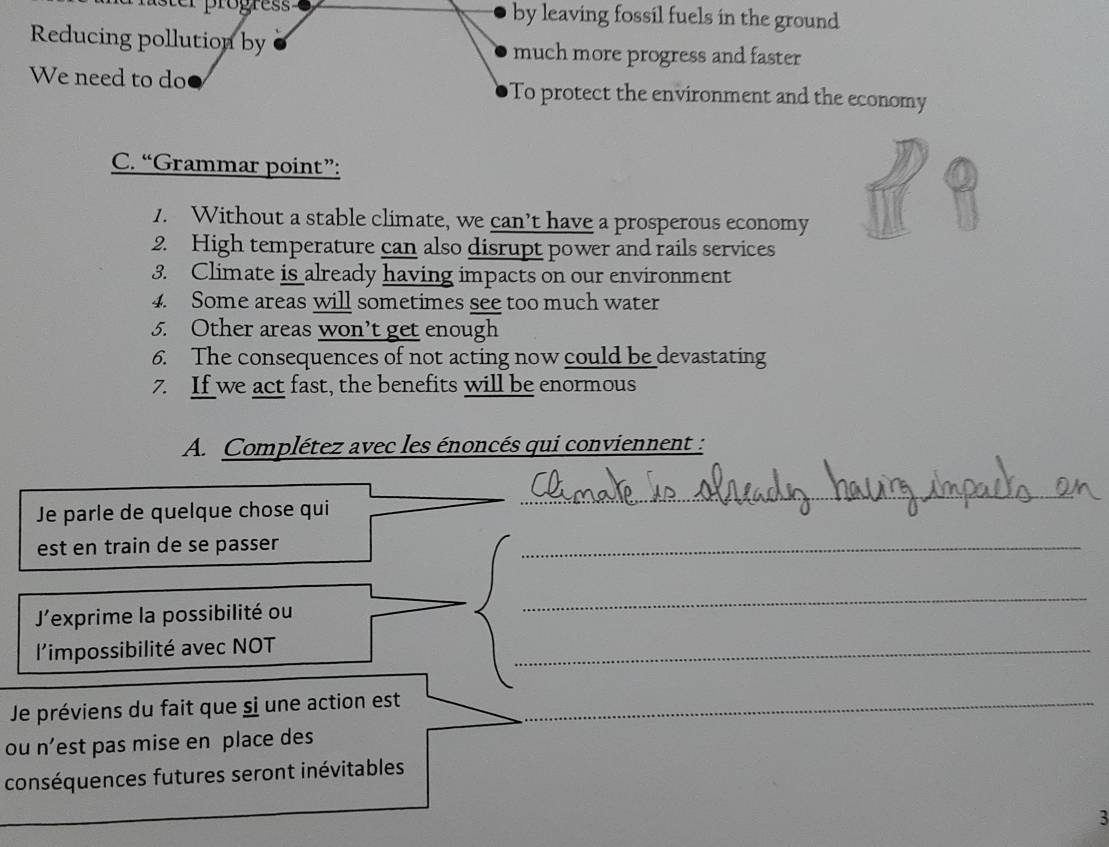 progress
by leaving fossil fuels in the ground
Reducing pollution by
much more progress and faster
We need to do
To protect the environment and the economy
C. “Grammar point”:
1. Without a stable climate, we can’t have a prosperous economy
2. High temperature can also disrupt power and rails services
3. Climate is already having impacts on our environment
4. Some areas will sometimes see too much water
5. Other areas won’t get enough
6. The consequences of not acting now could be devastating
7. If we act fast, the benefits will be enormous
A. Complétez avec les énoncés qui conviennent :
Climate is already having impacts on
Je parle de quelque chose qui
est en train de se passer
J’exprime la possibilité ou
l’impossibilité avec NOT
Je préviens du fait que si une action est
ou n’est pas mise en place des
conséquences futures seront inévitables
3